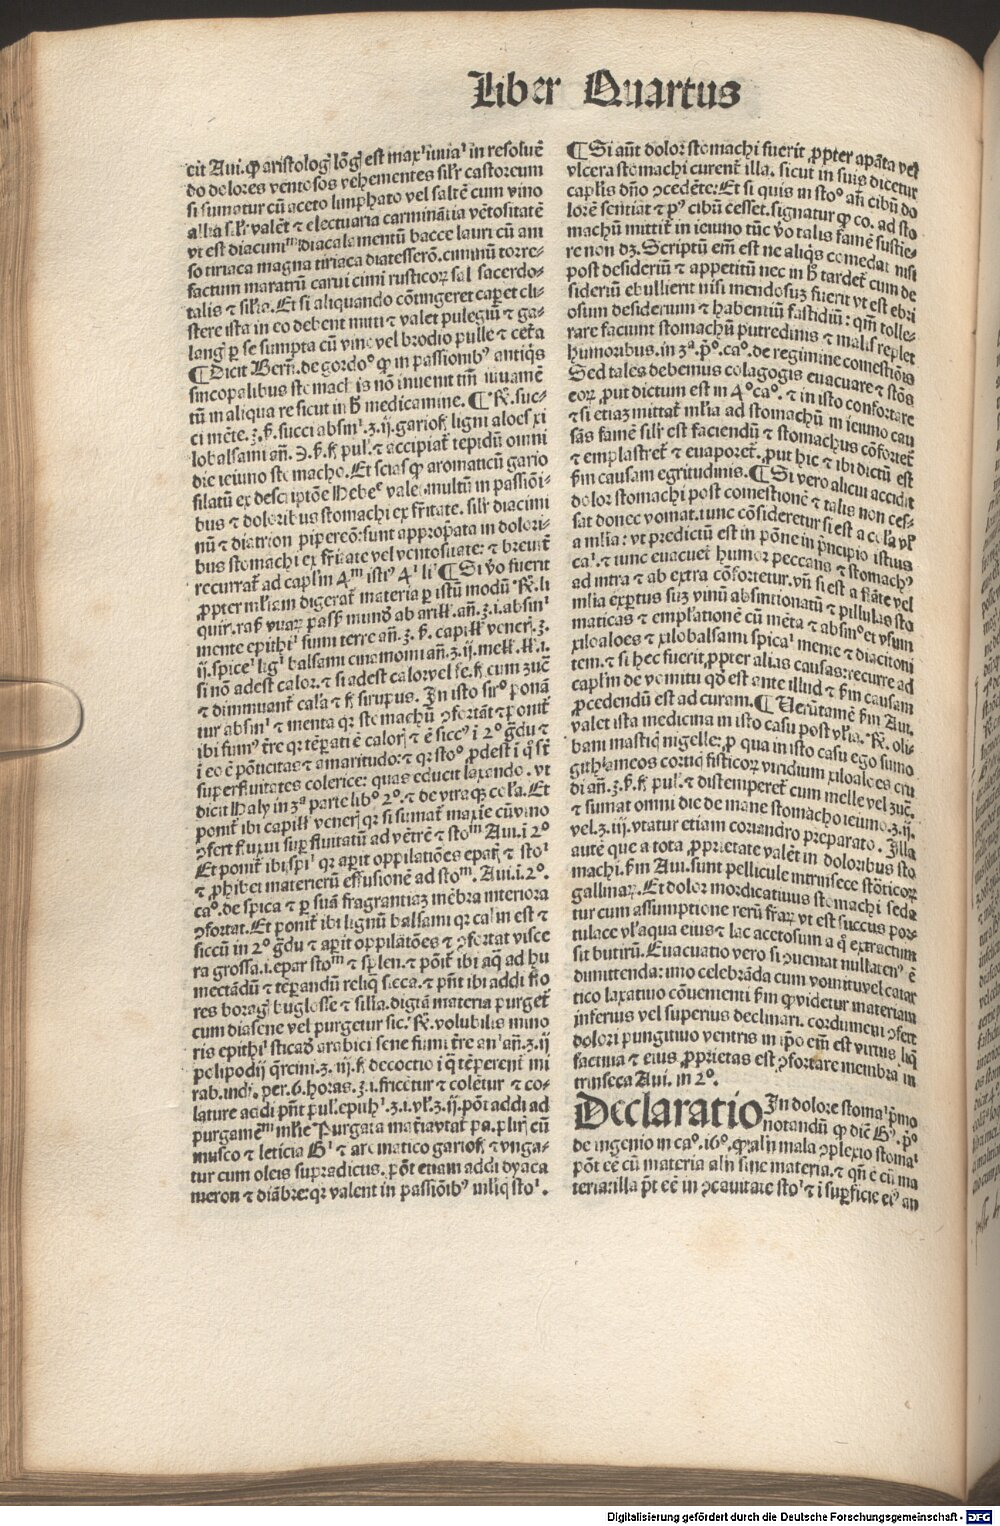 Liber Quartus
cit Aui. ꝙ aristolog̃ lõg̃ est max iuua in resoluẽ
do dolores ventosos vehementes silr castoreum
si sumatur cũ aceto limphato vel saltẽ cum vino
alba silr valẽt ⁊ electuaria carminãtia vẽtositatẽ
vt est diacumᵐ diacalamentũ bacce lauri cũ ani
so tiriaca magna tiriaca diatesserõ. ciminũ torre-
factum maratrũ carui cimi rusticoꝝ sal sacerdo-
talis ⁊ silia. Et si aliquando cõtingeret caperet cli-
stere ista in eo debent mitti ⁊ valet pulegiũ ⁊ ga-
lang̃ ꝑ se sumpta cũ vino vel brodio pulle ⁊ ceta
¶ Dicit Bern̄. de gordoº ꝙ in passionibꝰ antiqs
sincopalibus stomachis nõ inuenit tm̄ iuuamẽ
tũ in aliqua re sicut in h̄ medicamine. ¶ ℞. suc-
ci mẽte. ʒ. ß. succi absin. ʒ. ij. gariof. ligni aloes xi
lobalsami añ. ℈. ß. f. pul. ⁊ accipiat tepidũ omni
die ieiuno stomacho. Et scias ꝙ aromaticũ gario
filatũ ex descriptõe Mebe valet multũ in passiõi-
bus ⁊ doloribus stomachi ex fritate. silr diacimi
nũ ⁊ diatrion pipereõ: sunt appropata in dolori-
bus stomachi ex fritate vel ventositate: ⁊ breuit
recurrat ad caplm 4ᵐ istiꝰ 4 li ¶ Si ꝟo fuerit
ꝓpter mliam digerat materia ꝑ istũ modũ ℞. li
quir. ras. vuaꝝ pass. mund ab arill. añ. ʒ. i. absin
mente epithi fumi terre añ. ʒ. ß. capill veneꝝ. ʒ.
ij. spice lig̃ balsami cinamomi añ. ʒ. ij. mell. ll. i.
si nõ adest calor. ⁊ si adest calor vel se. f. cum zuc̃
⁊ diminuant cala ⁊ f. sirupus. In isto siroº ponã
tur absin ⁊ menta qꝛ stomachũ ꝯfortãt ⁊ ponit
ibi fumꝰ tre qꝛ tẽperati ẽ caloꝝ ⁊ ẽ siccꝰ i 2º g̃du ⁊
i eo ẽ põticitas ⁊ amaritudo: ⁊ qꝛ stoº ꝓdest i q st
superfluitates colerice: quas educit laxando. vt
dicit Haly in 3ª parte libº 2º. ⁊ de vtraqꝫ cola. Et
ponit ibi capill veneꝝ qꝛ si sumat maxie cũ vino
ꝯfert fluxui superfluitatũ ad vẽtrẽ ⁊ stoᵐ Aui. ĩ 2º
Et ponit ibi spi qꝛ aperit oppilatiões epaꝝ ⁊ sto
⁊ ꝓhibet materierũ effusionẽ ad stoᵐ. Aui. ĩ. 2º.
caº. de spica ⁊ ꝑ suã fragrantiaʒ mẽbra interiora
ꝯfortat. Et ponit ibi lignũ balsami qꝛ calm est ⁊
siccũ in 2º g̃du ⁊ aperit oppilatões ⁊ ꝯfortat visce
ra grossa. i. epar stoᵐ ⁊ splen. ⁊ põit ibi aq̃ ad hu
mectãdũ ⁊ tẽperandũ reliq̃ sicca. ⁊ pñt ibi addi flo
res borag̃ buglosse ⁊ silia. digiã materia purget
cum diasene vel purgetur sic. ℞. volubilis mino
ris epithi sticad arabici sene fumi tre an añ. ʒ. ij
polipodij q̃rcini. ʒ. iij. f. decoctio i q tẽperent mi
rab. ind. per. 6. horas. ʒ. i. fricetur ⁊ colẽtur ⁊ co-
lature addi pñt pul. epith. ʒ. i. vl. ʒ. ij. põt addi ad
purgamẽᵐ mlie Purgata mat̃ia vtat pa. plirj cũ
musco ⁊ leticia G̃ ⁊ aromatico gariof. ⁊ vnga-
tur cum oleis supradictis. põt etiam addi dyaca
meron ⁊ diãbre: qꝛ valent in passiõibꝰ mliq̃ sto.
¶ Si aũt dolor stomachi fuerit ꝓpter apata vel
vlcera stomachi curent illa. sicut in suis dicetur
caplis dño ꝯcedẽte: Et si quis in stoº añ cibũ do
lorẽ sentiat ⁊ pꝰ cibũ cesset. signatur ꝙ co. ad sto
machũ mittit in ieiuno tũc ꝟo talis famẽ sustie-
re non dʒ. Scriptũ em̄ est ne aliqs comedat nisi
post desideriũ ⁊ appetitũ nec in h̄ tardet cum de
sideriũ ebullierit nisi mendosuʒ fuerit vt est ebri
osum desiderium ⁊ habentiũ fastidiũ: qm̄ tolle-
rare faciunt stomachũ putredinis ⁊ malis replet
humoribus. in 3ª. pº. caº. de regimine comestiõis
Sed tales debemus colagogis euacuare ⁊ stõs
eoꝝ ꝓut dictum est in 4º caº. ⁊ in isto confortare
⁊ si etiaʒ mittat mlia ad stomachũ in ieiuno cau
sãs famẽ silr est faciendũ ⁊ stomachus cõfortet
⁊ emplastret ⁊ euaporet. ꝓut hic ⁊ ibi dictũ est
ẜm causam egritudinis. ¶ Si vero alicui accidit
dolor stomachi post comestionẽ ⁊ talis non ces-
sat donec vomat. tunc cõsideretur si est a cola vl
a mlia: vt predictũ est in põne in p̃ncipio istius
ca. ⁊ tunc euacuet humor peccans ⁊ stomachꝰ
ad intra ⁊ ab extra cõfortetur. vñ si est a flãte vel
mlia expertus suʒ vinũ absintionatũ ⁊ pillulas sto
maticas ⁊ emplationẽ cũ mẽta ⁊ absinº et vsum
xiloaloes ⁊ xilobalsami spica mente ⁊ diacitoni
tem. ⁊ si hec fuerit ꝓpter alias causas: recurre ad
caplm de vomitu qd est ante illud ⁊ ẜm causam
ꝓcedendũ est ad curam. ¶ Verũtamẽ ẜm Aui.
valet ista medicina in isto casu post vlia. ℞. oli-
bani mastiq̃ nigelle: ꝓ qua in isto casu ego sumo
gith ameos cortiq̃ fisticoꝝ viridium xiloaloes cru
di añ. ʒ. ß. f. pul. ⁊ distemperet cum melle vel zuc̃.
⁊ sumat omni die de mane stomacho ieiuno. ʒ. ij.
vel. ʒ. iij. vtatur etiam coriandro preparato. Illa
autẽ que a tota ꝓprietate valẽt in doloribus sto
machi. ẜm Aui. sunt pellicule intrinsece stõticoꝝ
gallinaꝝ. Et dolor mordicatiuus stomachi seda
tur cum assumptione rerũ friaꝝ vt est succus por
tulace vl aqua eius ⁊ lac acetosum a q̃ extractum
sit butirũ. Euacuatio vero si ꝯueniat nullatenꝰ ẽ
dimittenda: imo celebrãda cum vomitu vel catar
tico laxatiuo cõuementi ẜm ꝙ videtur materiam
inferius vel superius declinari. cordumeni ꝯfert
dolori pungitiuo ventris in ipõ em̄ est virtus liq̃
factiua ⁊ eius ꝓprietas est ꝯfortare membra in
trinseca Aui. in 2º.
Declaratio In dolore stoma p̃mo
notandũ ꝙ diẽ G̃. pº
de ingenio in caº. 16º. ꝙ alĩn mala ꝯplexio stoma
põt eẽ cũ materia alĩn sine materia. ⁊ qñ ẽ cũ ma
teria: illa p̃t eẽ in ꝯcauitate sto ⁊ i superficie eiꝰ an
Digitalisierung gefördert durch die Deutsche Forschungsgemeinschaft - DFG